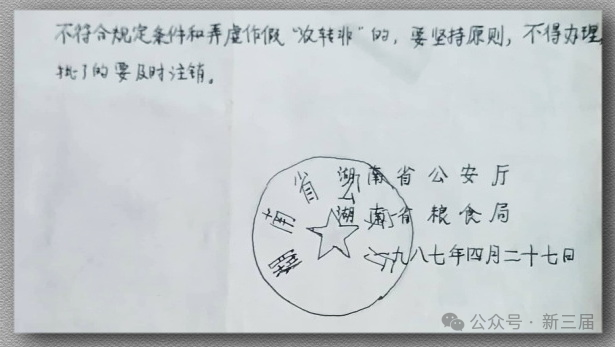 不符合规定条件和弄虚作假“农转非”的，要坚持原则，不得办理，
批了的要及时注销。
湖南省公安厅
湖南省粮食局
一九八七年四月二十七日
湖南省公
公众号·新三届